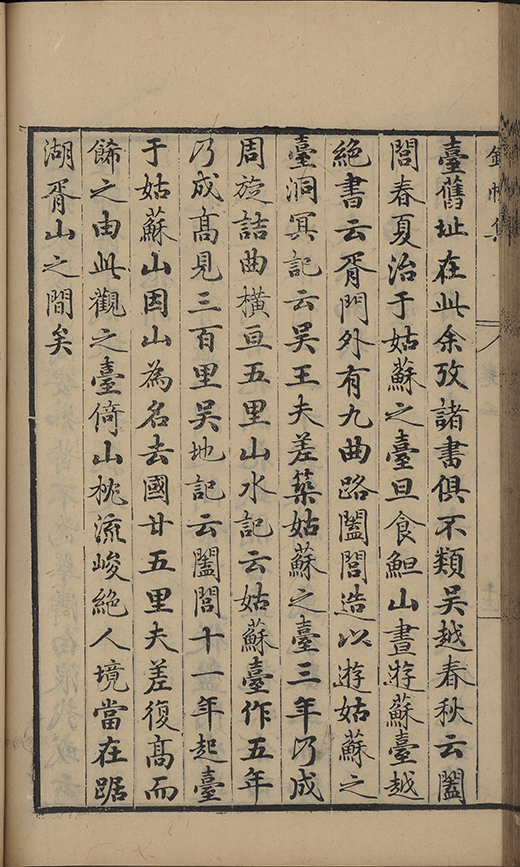 臺舊址在此余攷諸書俱不類吴越春秋云闔
閭春夏治于姑蘇之臺旦食䱇山晝遊蘇臺越
絶書云胥門外有九曲路闔閭造以遊姑蘇之
臺洞㝠記云吴王夫差築姑蘇之臺三年乃成
周旋詰曲橫亘五里山水記云姑蘇臺作五年
乃成髙見三百里吴地記云闔閭十一年起臺
于姑蘇山因山為名去國廿五里夫差復髙而
餙之由此觀之臺倚山枕流峻絶人境當在踞
湖胥山之間矣